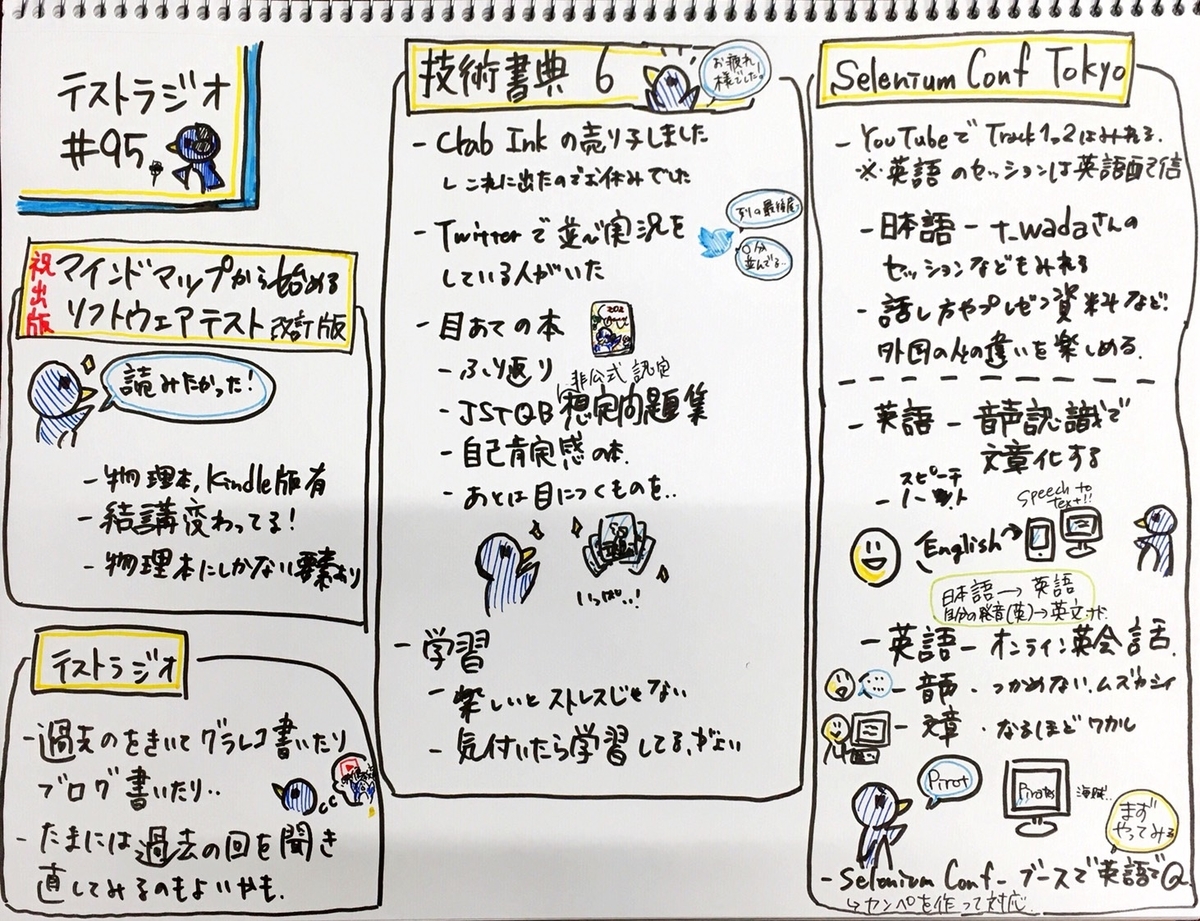 テストラジオ
#95
祝出版
マインドマップから始める
ソフトウェアテスト 改訂版
読みたかった!
- 物理本, Kindle版有
- 結講変わってる!
- 物理本にしかない要素あり
テストラジオ
- 過去のをきいてグラレコ書いたり
ブログ書いたり..
- たまには過去の回を聞き
直してみるのもよいかも.
技術書典 6
お疲れ
様でした。
- Chab Ink の売り子しました
これに出たのでお休みでした
- Twitterで並び実況を
している人がいた
列の最後尾
0分
並んでる..
- 目あての本
- ふり返り
非公式 認定
- JSTQB 想定問題集
- 自己肯定感の本.
- あとは目につくものを..
いっぱい..!
- 学習
- 楽しいとストレスじゃない
- 気付いたら学習してる、がよい
Selenium Conf Tokyo
- YouTubeで Track1,2はみれる.
※ 英語のセッションは英語配信
- 日本語 - t_wadaさんの
セッションなどもみれる
- 話し方やプレゼン資料など.
外国の人の違いを楽しめる.
- 英語 - 音声認識で
文章化する
スピーチ
Speech to
text!!
English
日本語 → 英語
自分の発音(英)→ 英文 か.
- 英語 - オンライン英会話.
- 音声・つかめない. ムズカシイ
- 文章・なるほどワカル
Pirot
Pirates
海賊!..
まず
やってみる
- Selenium Conf - ブースで英語でQ
↳ カンペを作って対応.